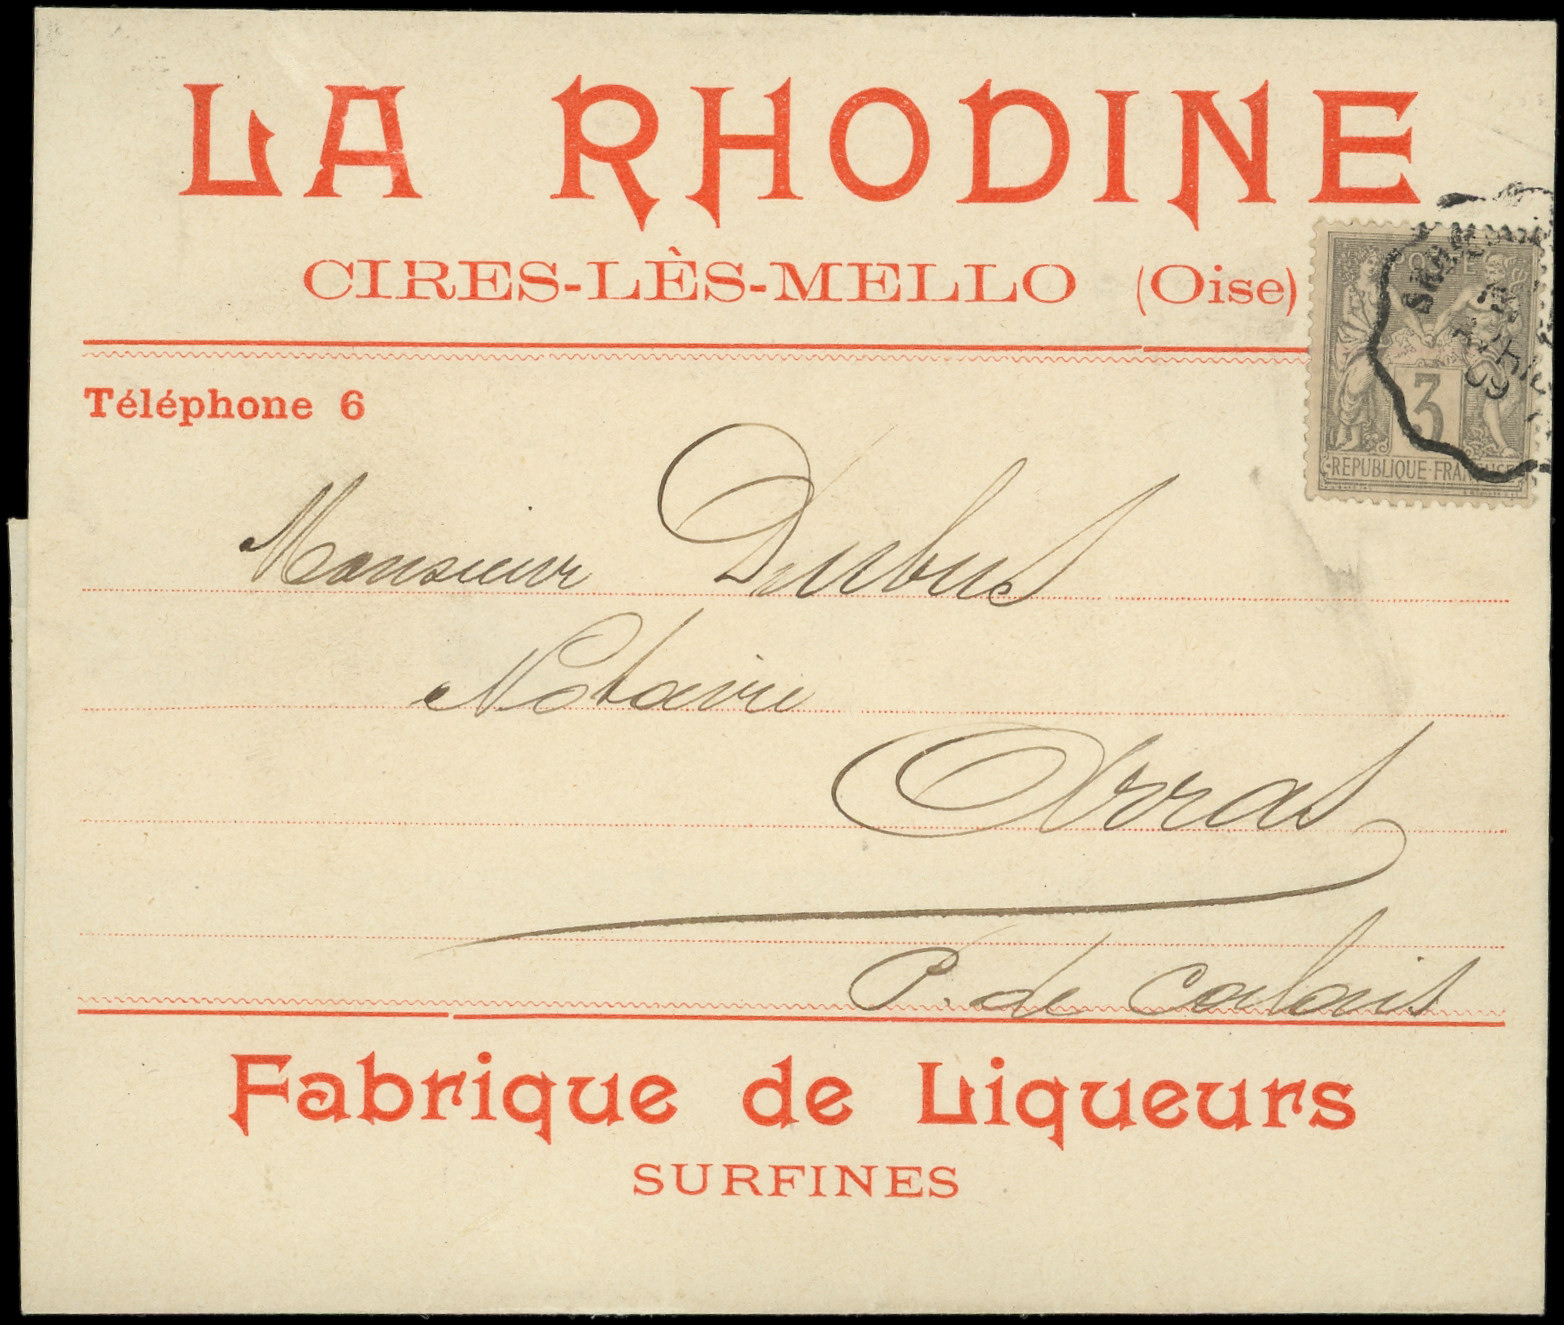 LA RHODINE
CIRES-LÈS-MELLO (Oise)
POSTE
3
REPUBLIQUE FRANÇAISE
09
Téléphone 6
Monsieur Dubus
Notaire
Arras
P. de Calais
Fabrique de Liqueurs
SURFINES